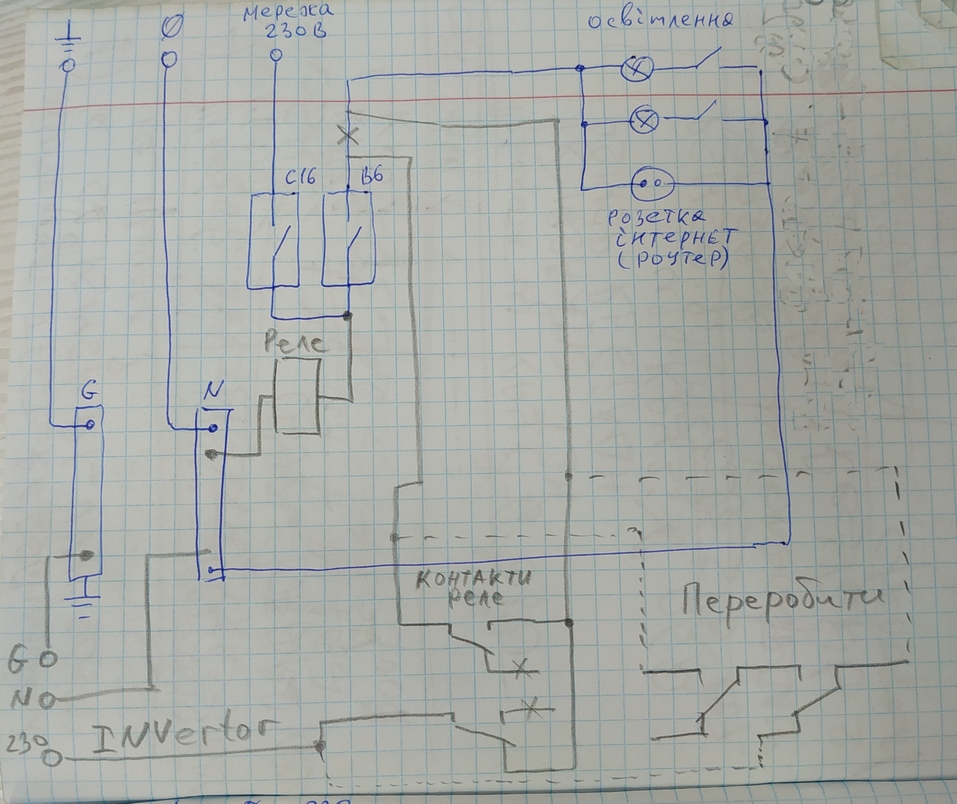 Ø
мережа
230В
освітлення
C16
B6
розетка
інтернет
(роутер)
Реле
G
N
контакти
реле
Переробити
G
N
230
INVertor